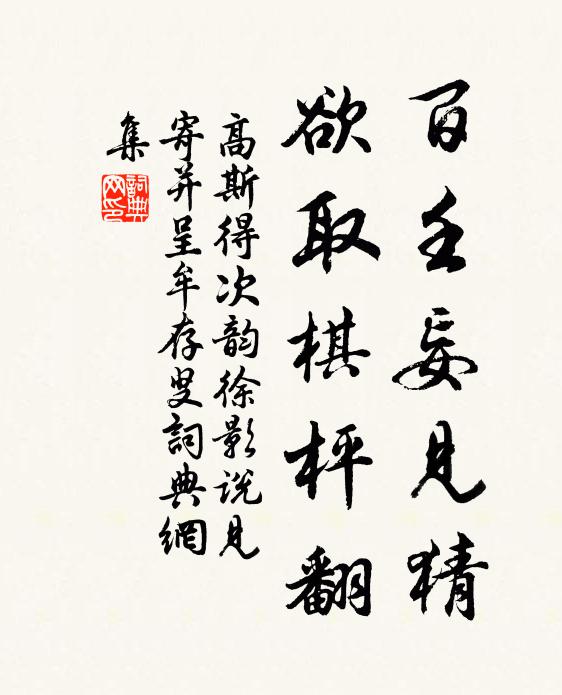 百壬妄見猜
欲取棋枰翻
高斯得次韵徐影说見
寄并呈牟存叟詞典網
集
詞典
网印